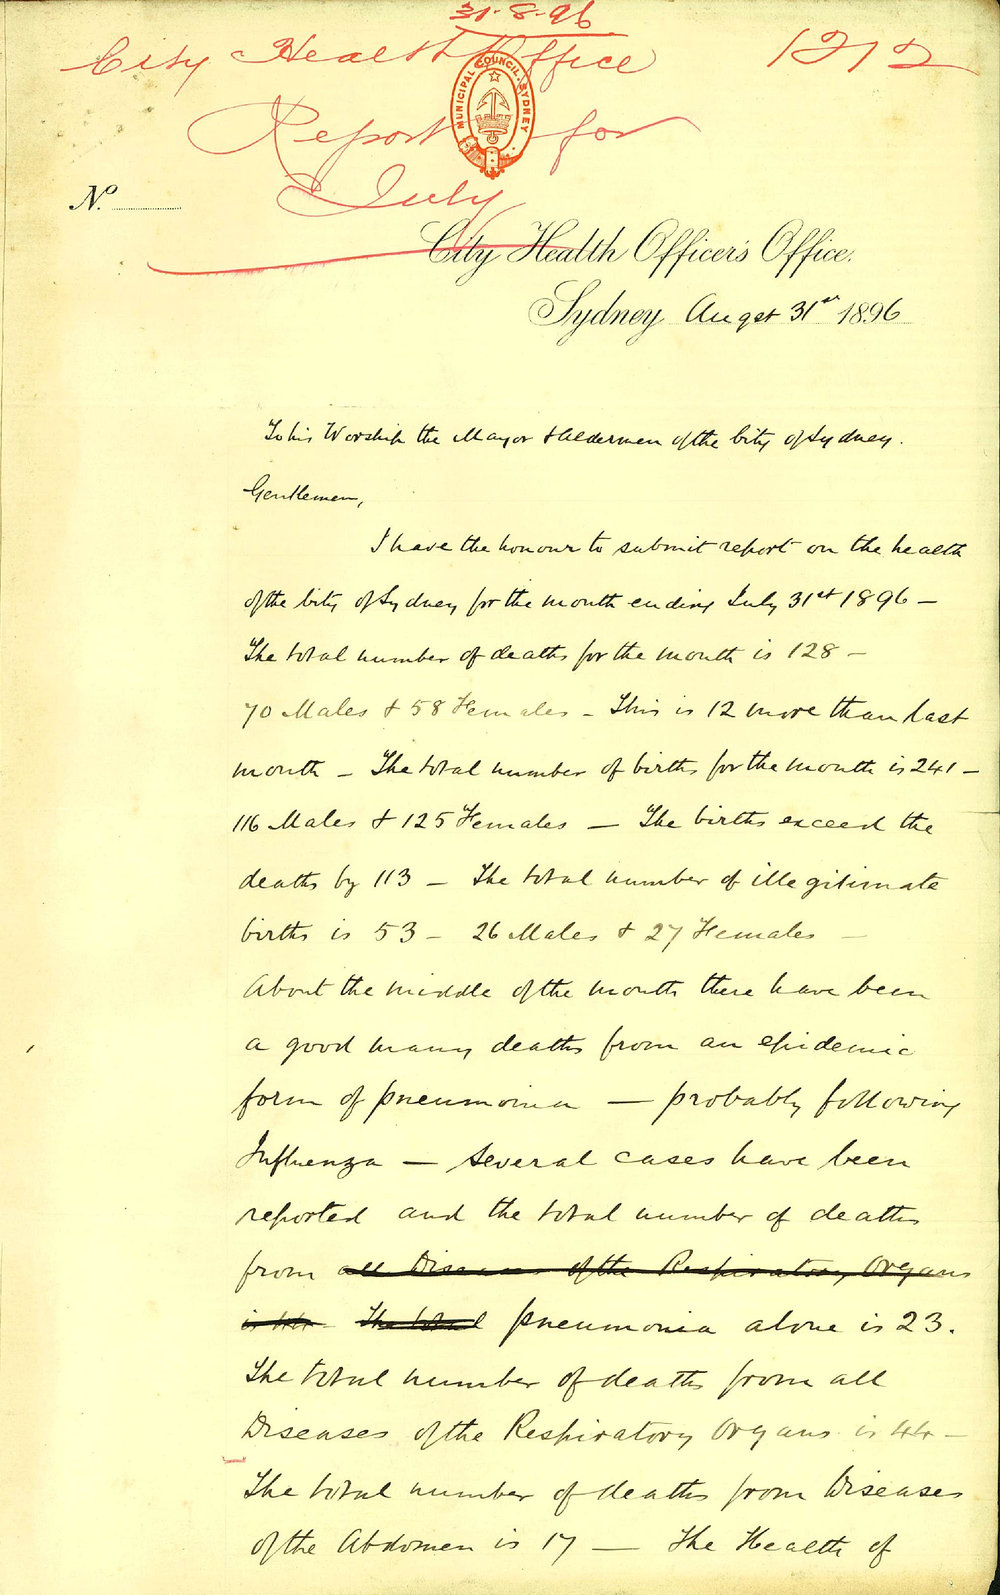 31.8.96
City Health Office 1212
MUNICIPAL COUNCIL. SYDNEY
Report for
July
No.
City Health Officer's Office.
Sydney Augst 31st 1896
To his Worship the Mayor & Aldermen of the City of Sydney.
Gentlemen,
I have the honour to submit report on the health
of the City of Sydney for the month ending July 31st 1896 —
The total number of deaths for the month is 128 —
70 Males & 58 Females — This is 12 more than last
month — The total number of births for the month is 241 —
116 Males & 125 Females — The births exceed the
deaths by 113 — The total number of illegitimate
births is 53 — 26 Males & 27 Females —
About the middle of the month there have been
a good many deaths from an epidemic
form of pneumonia — probably following
Influenza — Several cases have been
reported and the total number of deaths
from all Diseases of the Respiratory Organs
is 44 — The total pneumonia alone is 23.
The total number of deaths from all
Diseases of the Respiratory Organs is 44 —
The total number of deaths from Diseases
of the Abdomen is 17 — The Health of